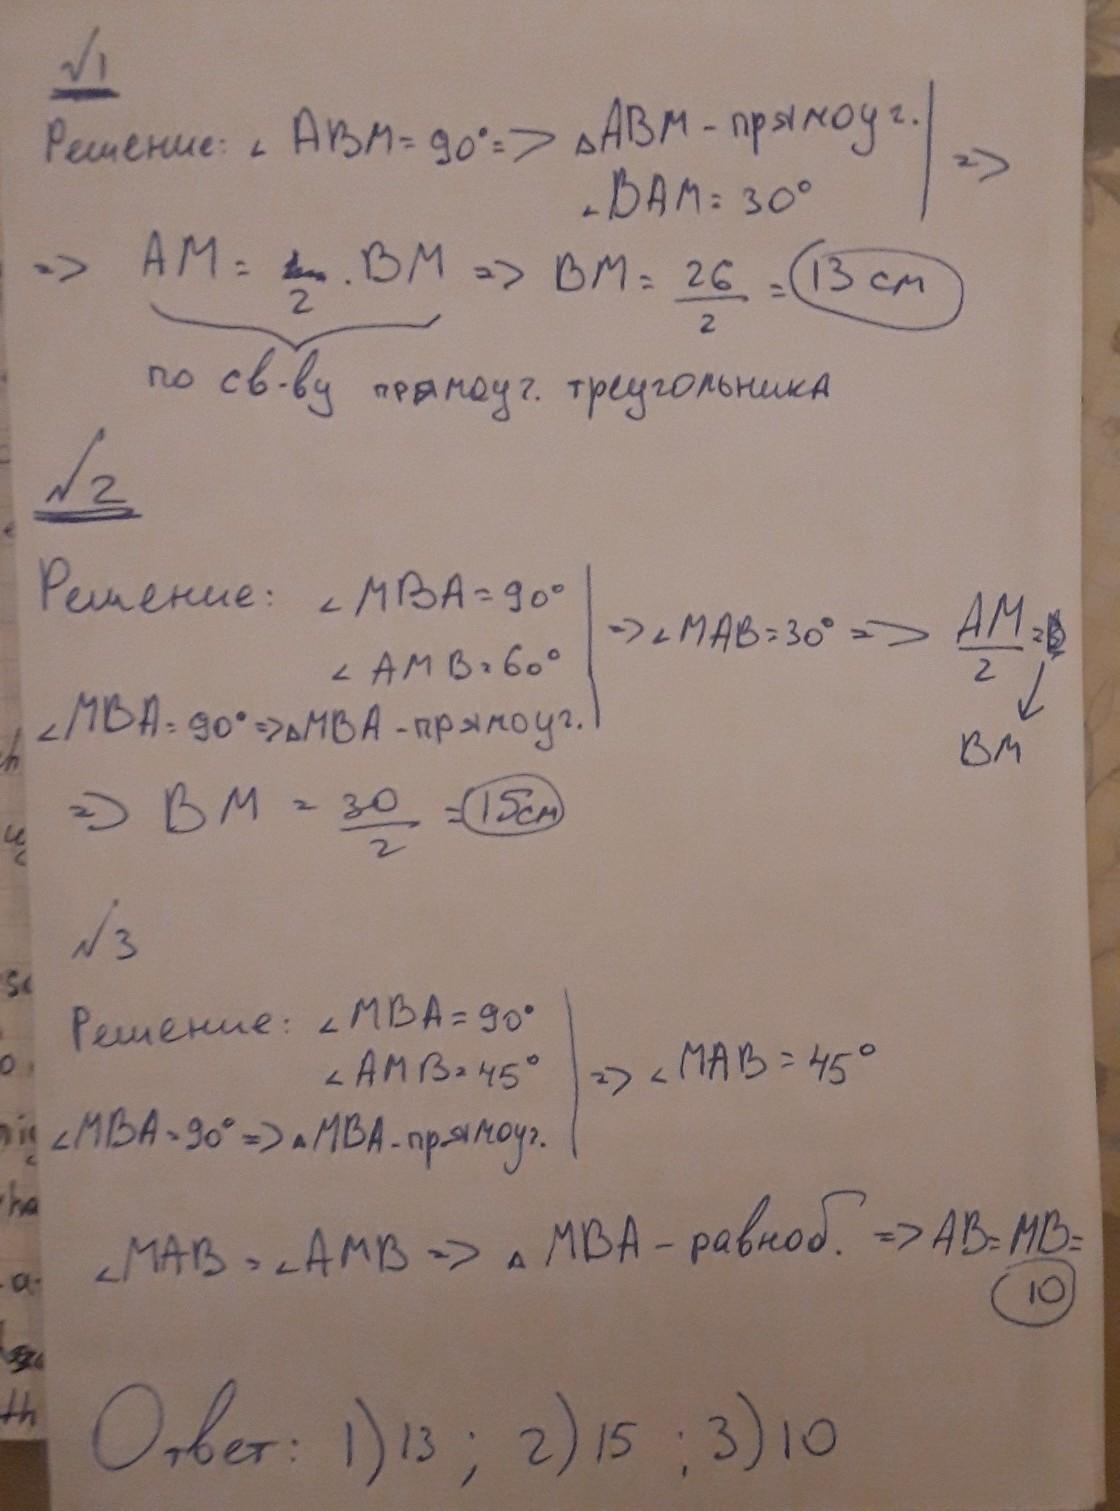 №1
Решение: ∠ABM = 90° => △ABM - прямоуг. | =>
∠BAM = 30°
=> AM = 2 · BM => BM = 26/2 = 13 см
по св-ву прямоуг. треугольника
№2
Решение: ∠MBA = 90°
∠AMB = 60° | => ∠MAB = 30° => AM/2 =
∠MBA = 90° => △MBA - прямоуг.
BM
=> BM = 30/2 = 15 см
№3
Решение: ∠MBA = 90°
∠AMB = 45° | => ∠MAB = 45°
∠MBA = 90° => △MBA - прямоуг.
∠MAB = ∠AMB => △MBA - равноб. => AB = MB =
10
Ответ: 1) 13 ; 2) 15 ; 3) 10